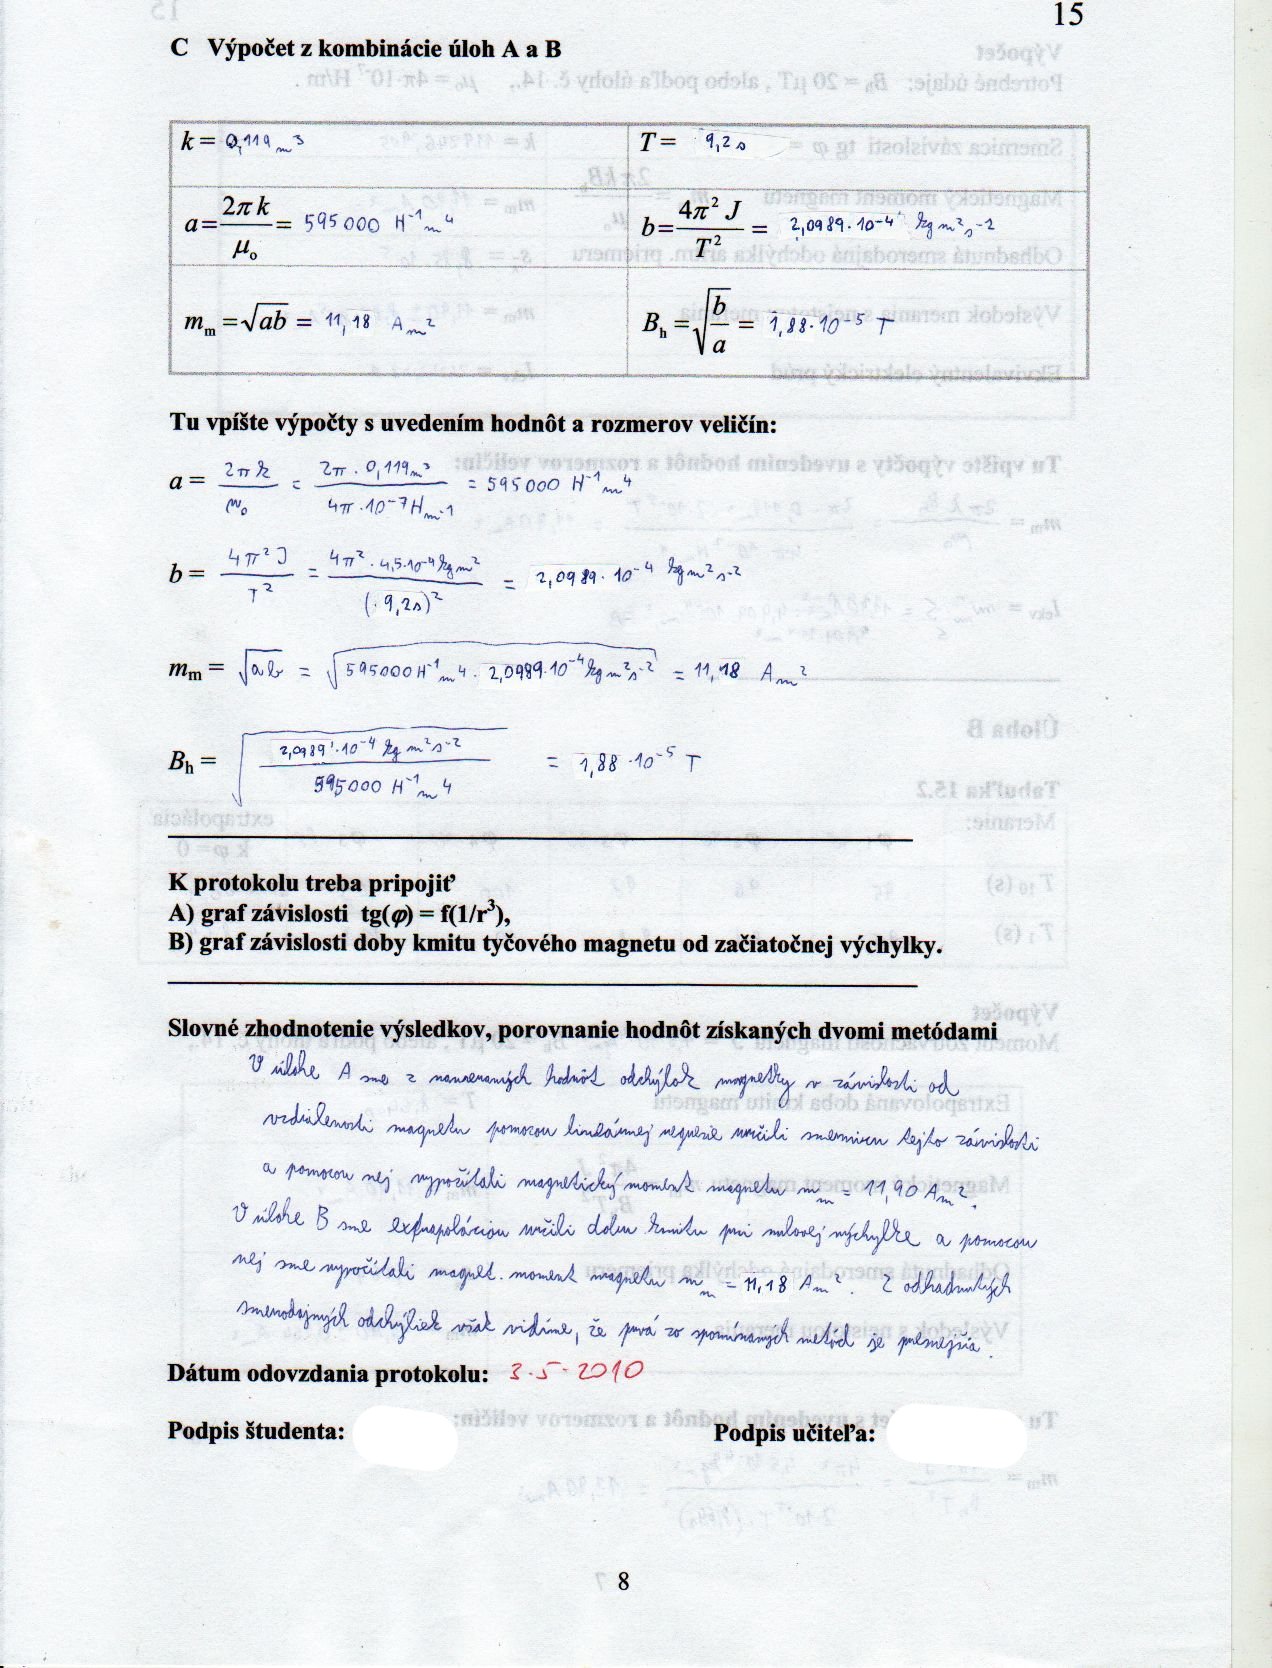 15
C Výpočet z kombinácie úloh A a B
k = 0,119 m³
T = 9,2 s
a = 2π k / μ₀ = 595 000 H⁻¹ m⁴
b = 4π² J / T² = 2,0989 · 10⁻⁴ kg m² s⁻²
mₘ = √ab = 11,18 A m²
Bₕ = √(b / a) = 1,88 · 10⁻⁵ T
Tu vpíšte výpočty s uvedením hodnôt a rozmerov veličín:
a = 2π k / μ₀ = 2π · 0,119 m³ / 4π · 10⁻⁷ H m⁻¹ = 595 000 H⁻¹ m⁴
b = 4π² J / T² = 4π² · 4,5 · 10⁻⁴ kg m² / (9,2 s)² = 2,0989 · 10⁻⁴ kg m² s⁻²
mₘ = √ab = √(595 000 H⁻¹ m⁴ · 2,0989 · 10⁻⁴ kg m² s⁻²) = 11,18 A m²
Bₕ = √(2,0989 · 10⁻⁴ kg m² s⁻² / 595 000 H⁻¹ m⁴) = 1,88 · 10⁻⁵ T
K protokolu treba pripojiť
A) graf závislosti tg(φ) = f(1/r³),
B) graf závislosti doby kmitu tyčového magnetu od začiatočnej výchylky.
Slovné zhodnotenie výsledkov, porovnanie hodnôt získaných dvomi metódami
V úlohe A sme z nameraných hodnôt odchýlok magnetky v závislosti od
vzdialenosti magnetu pomocou lineárnej regresie určili smernicu tejto závislosti
a pomocou nej vypočítali magnetický moment magnetu mₘ = 11,90 A m².
V úlohe B sme extrapoláciou určili dobu kmitu pri nulovej výchylke a pomocou
nej sme vypočítali magnet. moment magnetu mₘ = 11,18 A m². Z odhadnutých
smerodajných odchýliek však vidíme, že prvá zo spomínaných metód je presnejšia.
Dátum odovzdania protokolu: 3.5.2010
Podpis študenta: Podpis učiteľa:
8